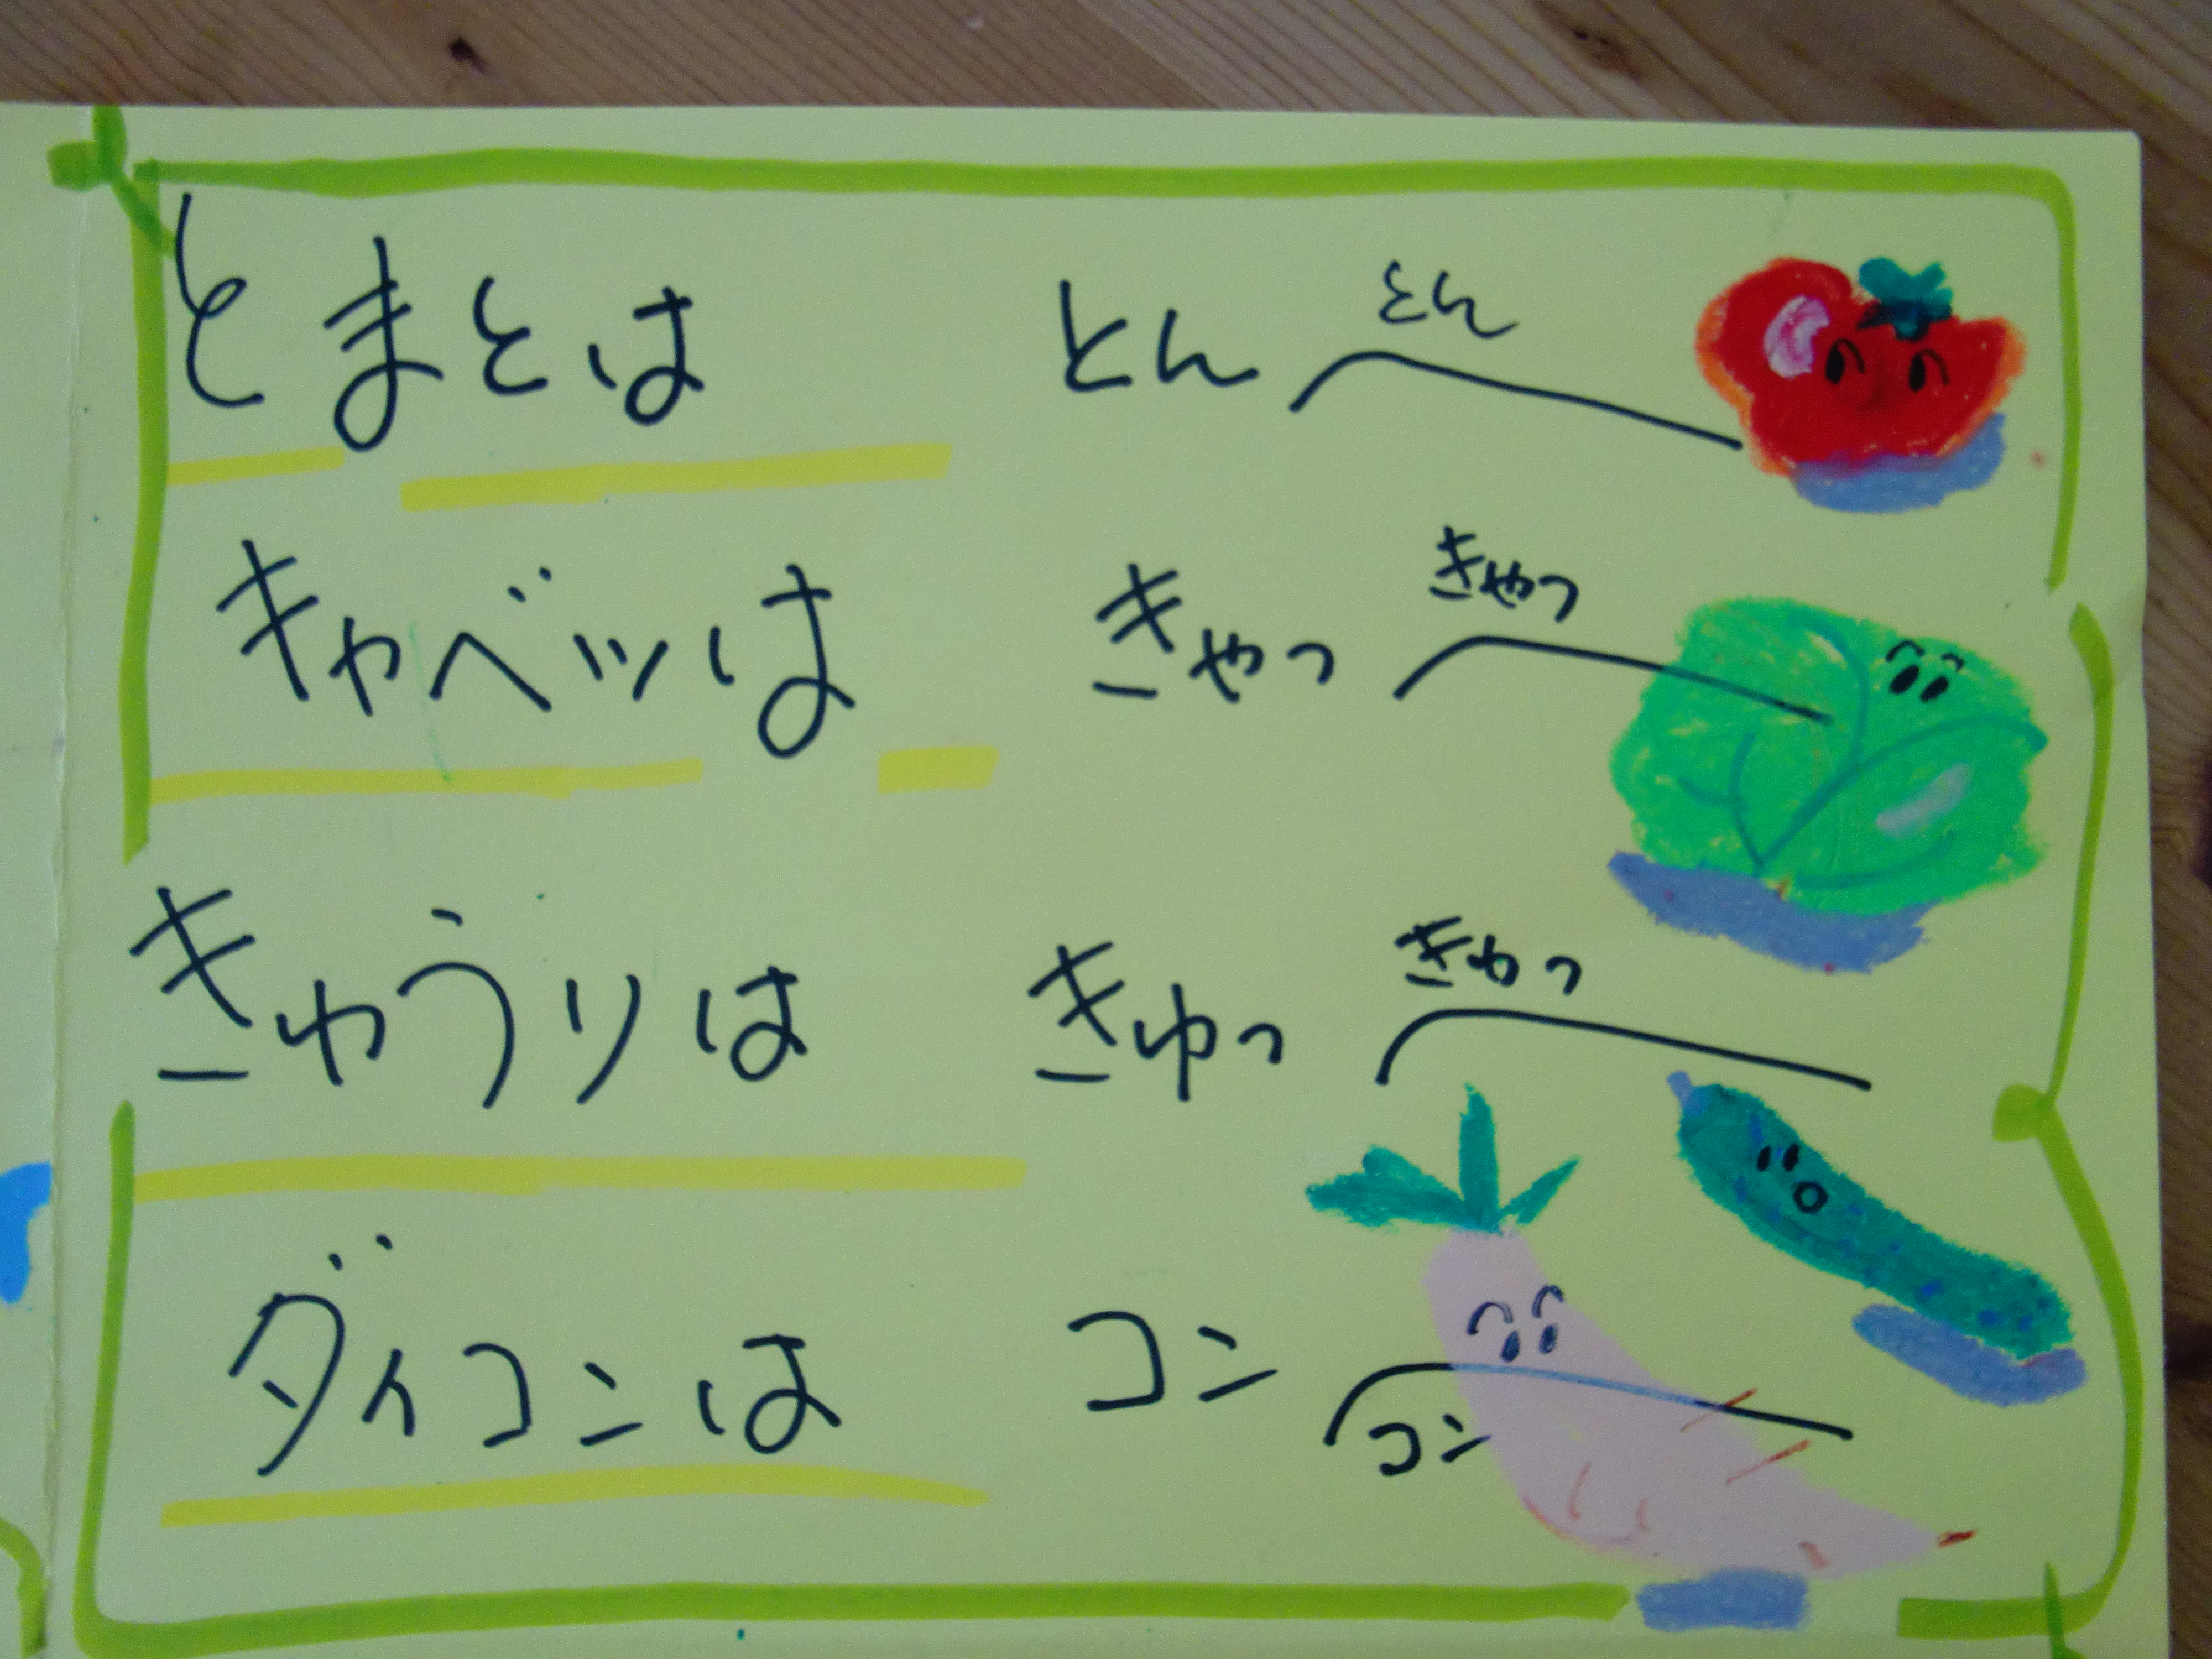 とまとは とん とん
キャベツは きゃっ きゃっ
きゅうりは きゅっ きゅっ
ダイコンは コン コン